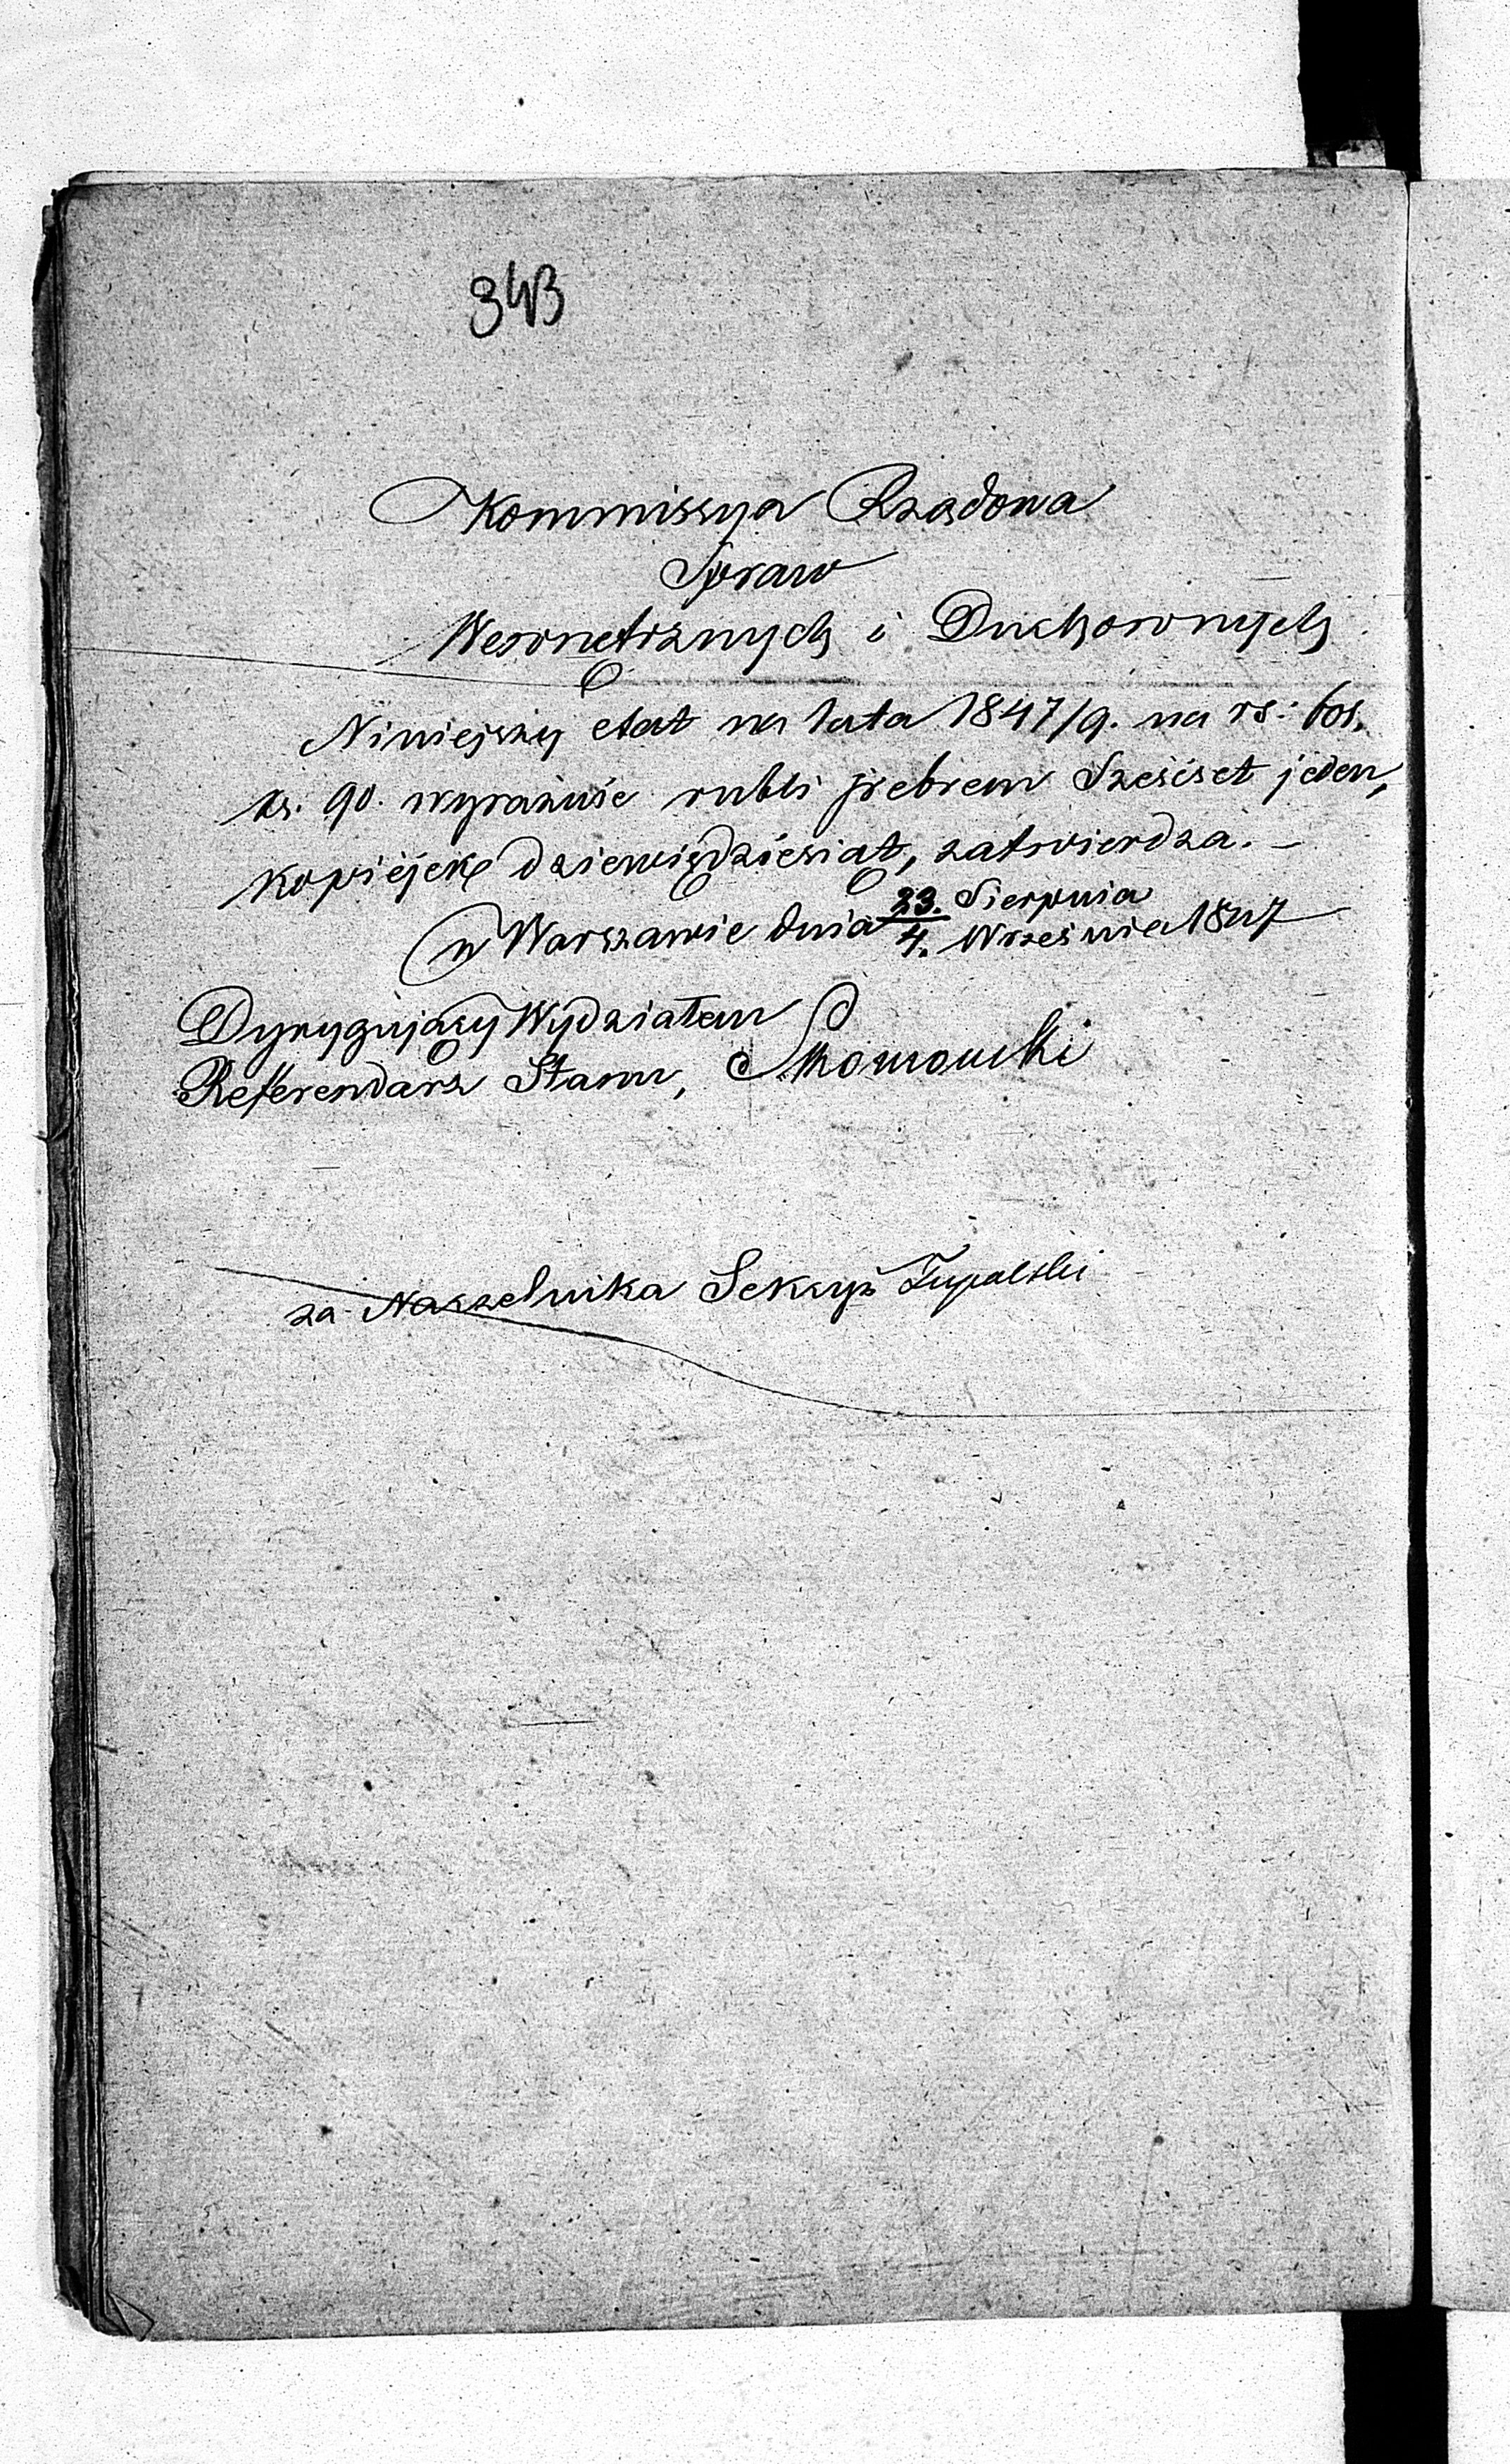 343
Kommissya Rządowa
Spraw
Wewnetrznych i Duchownych
Niniejszy etat na lata 1847/9. na rs: 601.
ks. 90. wyraźnie rubli srebrem Sześćset jeden,
kopiejek dziewięćdziesiąt, zatwierdza. –
w Warszawie dnia 23. Sierpnia
4. Września 1847
Dyrygujący Wydziałem
Referendarz Stanu,
za Naczelnika Sekcyi